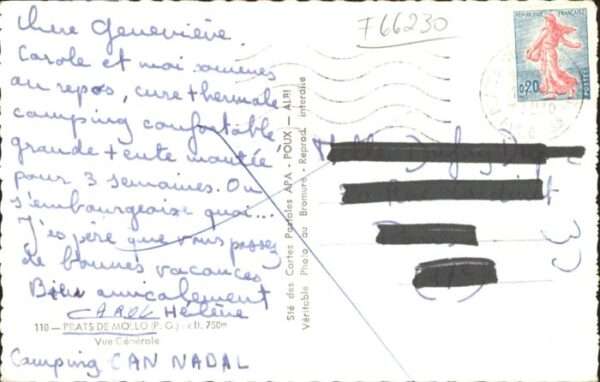 Chère Geneviève.
Carole et moi sommes
au repos, cure thermale
camping confortable
grande tente montée
pour 3 semaines. On
s'embourgeoise quoi...
J'espère que vous passez
de bonnes vacances
Bien amicalement
CAROL Hélène
110 - PRATS DE MOLLO (P. O.) - alt. 750m
Vue Générale
Camping CAN NADAL
Sté des Cartes Postales APA - POUX - ALBI
Véritable Photo au Bromure - Reprod. interdite
F66230
REPUBLIQUE FRANÇAISE
0,20
POSTES